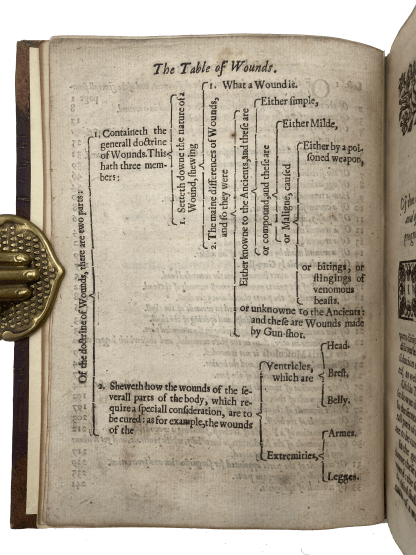 The Table of Wounds.
Of the doctrine of Wounds, there are two parts:
1. Containeth the
generall doctrine
of Wounds. This
hath three mem-
bers:
1. Setteth downe the nature of a
Wound, shewing
1. What a Wound is.
2. The maine differences of Wounds,
and so they were
Either knowne to the Ancients, and these are
Either simple,
or compound, and these are
Either Milde,
or Maligne, caused
Either by a poi-
soned weapon,
or bitings, or
stingings of
venomous
beasts.
or unknowne to the Ancients:
and these are Wounds made
by Gun-shot.
2. Sheweth how the wounds of the se-
verall parts of the body, which re-
quire a speciall consideration, are to
be cured: as for example, the wounds
of the
Ventricles,
which are
Head.
Brest.
Belly.
Extremities,
Armes.
Legges.